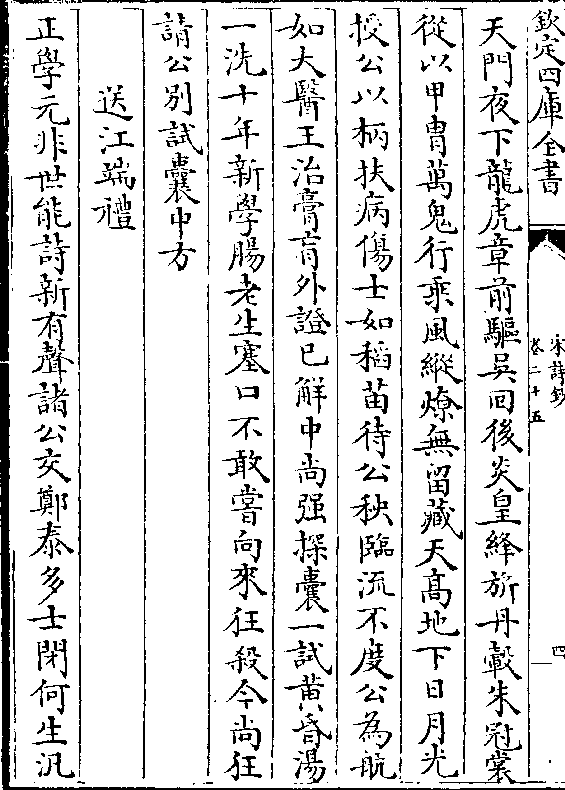 欽定四庫全書
宋詩鈔
卷二十五
四
天門夜下龍虎章前驅吳回後炎皇絳旂丹轂朱冠裳
從以甲胄萬鬼行乘風縱燎無留藏天高地下日月光
授公以柄扶病傷士如稻苗待公秧臨流不度公為航
如大醫王治膏肓外證已解中尚强探囊一試黃昏湯
一洗十年新學腸老生塞口不敢嘗向來狂殺今尚狂
請公別試囊中方
送江端禮
正學元非世能詩新有聲諸公交鄭泰多士閉何生汎